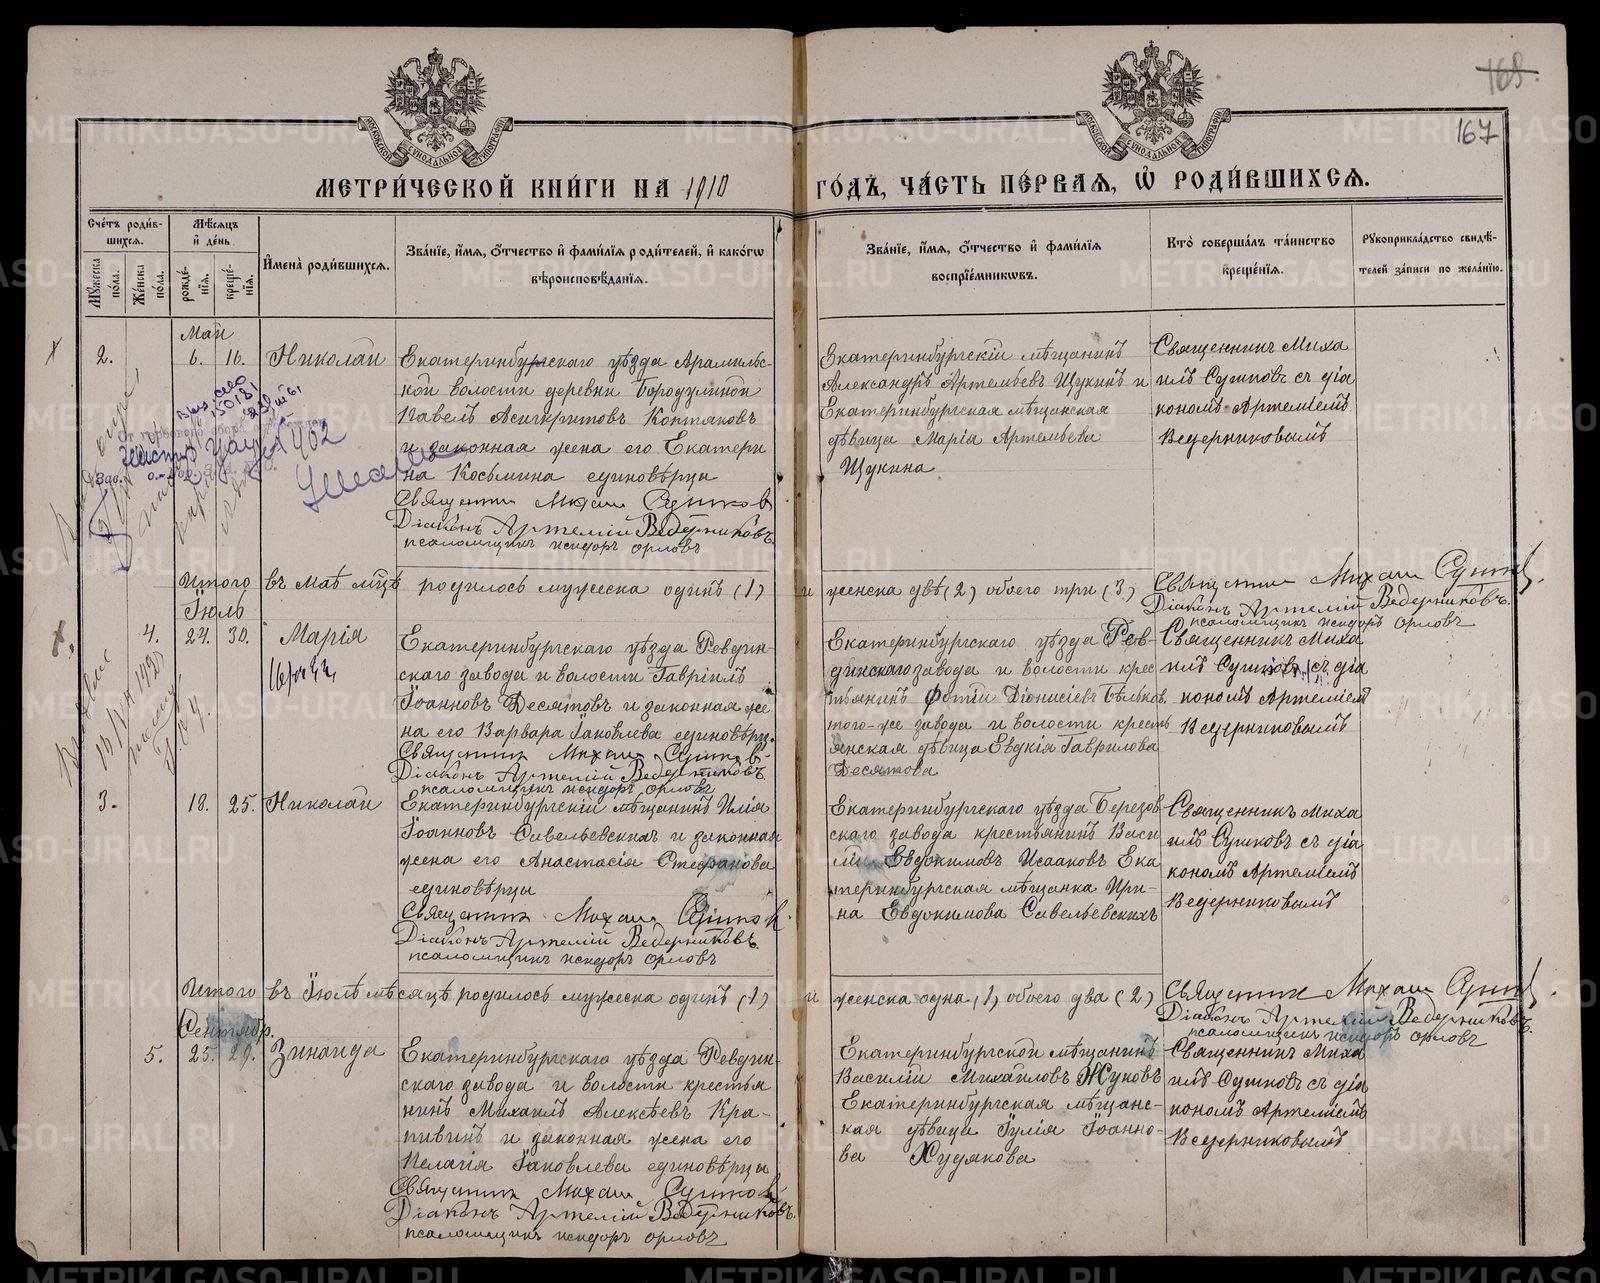 168
167
МОСКОВСКОЙ СУНОДАЛЬНОЙ ТИПОГРАФІИ
МОСКОВСКОЙ СУНОДАЛЬНОЙ ТИПОГРАФІИ
МЕТРИ́ЧЕСКОЙ КНИ́ГИ НА 1910 ГО́ДЪ, ЧА́СТЬ ПЕ́РВАЯ, Ѡ҆ РОДИ́ВШИХСЯ.
Сче́тъ роди́в-
шихся.
Мꙋ́жеска по́ла.
Же́нска по́ла.
Мѣ́сяцъ
и҆ де́нь.
рожде́-
нїя.
креще́-
нїя.
И҆мена̀ роди́вшихся.
Зва́нїе, и҆́мя, ѻ҆́тчество и҆ фами́лїя роди́телей, и҆ како́гѡ
вѣ́роисповѣ́данїя.
Зва́нїе, и҆́мя, ѻ҆́тчество и҆ фами́лїя
воспрїе́мникѡвъ.
Кто̀ соверша́лъ та́инство
креще́нїя.
Рꙋкоприкла́дство свидѣ́-
телей за́писи по жела́нїю.
Май
2. 6. 16. Николай
Екатеринбургскаго уѣзда Арамильс-
кой волости деревни Бородулиной
Павелъ Асигкритовъ Контяковъ
и законная жена его Екатери
на Косьмина единовѣрцы
Священникъ Михаилъ Сушковъ
Діаконъ Артемій Ведерниковъ
псаломщикъ Исидоръ Орловъ
Екатеринбургскій мѣщанинъ
Александръ Артемьевъ Щукинъ и
Екатеринбургская мѣщанская
дѣвица Марія Артемьева
Щукина
Священникъ Миха
илъ Сушковъ съ діа
кономъ Артеміемъ
Ведерниковымъ
Итого въ маѣ мѣцѣ родилось мужеска одинъ (1) и женска двѣ (2) обоего три (3)
Священникъ Михаилъ Сушковъ
Діаконъ Артемій Ведерниковъ.
псаломщикъ Исидоръ Орловъ
Іюль
4. 24. 30. Марія
Екатеринбургскаго уѣзда Ревдин-
скаго завода и волости Гавріилъ
Іоанновъ Десятовъ и законная же
на его Варвара Іаковлева единовѣрцы
Священникъ Михаилъ Сушковъ
Діаконъ Артемій Ведерниковъ
псаломщикъ Исидоръ Орловъ
Екатеринбургскаго уѣзда Рев-
динскаго завода и волости крес
тьянинъ Фотій Діонисіевъ Бѣлковъ
того-же завода и волости кресть
янская дѣвица Евдкія Гаврилова
Десятова
Священникъ Миха
илъ Сушковъ съ діа
кономъ Артеміемъ
Ведерниковымъ
3. 18. 25. Николай
Екатеринбургскій мѣщанинъ Илія
Іоанновъ Савельевскихъ и законная
жена его Анастасія Стефанова
единовѣрцы
Священникъ Михаилъ Сушковъ
Діаконъ Артемій Ведерниковъ
псаломщикъ Исидоръ Орловъ
Екатеринбургскаго уѣзда Березов
скаго завода крестьянинъ Васи
лій Евдокимовъ Исааковъ Ека
теринбургская мѣщанка Ири-
на Евдокимова Савельевскихъ
Священникъ Миха
илъ Сушковъ съ діа
кономъ Артеміемъ
Ведерниковымъ
Итого въ Іюлѣ мѣсяцѣ родилось мужеска одинъ (1) и женска одна (1) обоего два (2)
Священникъ Михаилъ Сушковъ
Діаконъ Артемій Ведерниковъ.
псаломщикъ Исидоръ Орловъ
Сентябр.
5. 25. 29. Зинаида
Екатеринбургскаго уѣзда Ревдин-
скаго завода и волости крестья
нинъ Михаилъ Алексѣевъ Кра-
пивинъ и законная жена его
Пелагія Іаковлева единовѣрцы
Священникъ Михаилъ Сушковъ
Діаконъ Артемій Ведерниковъ.
псаломщикъ Исидоръ Орловъ
Екатеринбургской мѣщанинъ
Василій Михаиловъ Жуковъ
Екатеринбургская мѣщанс-
кая дѣвица Іулія Іоанно-
ва Худякова
Священникъ Миха
илъ Сушковъ съ діа
кономъ Артеміемъ
Ведерниковымъ
METRIKI.GASO-URAL.RU